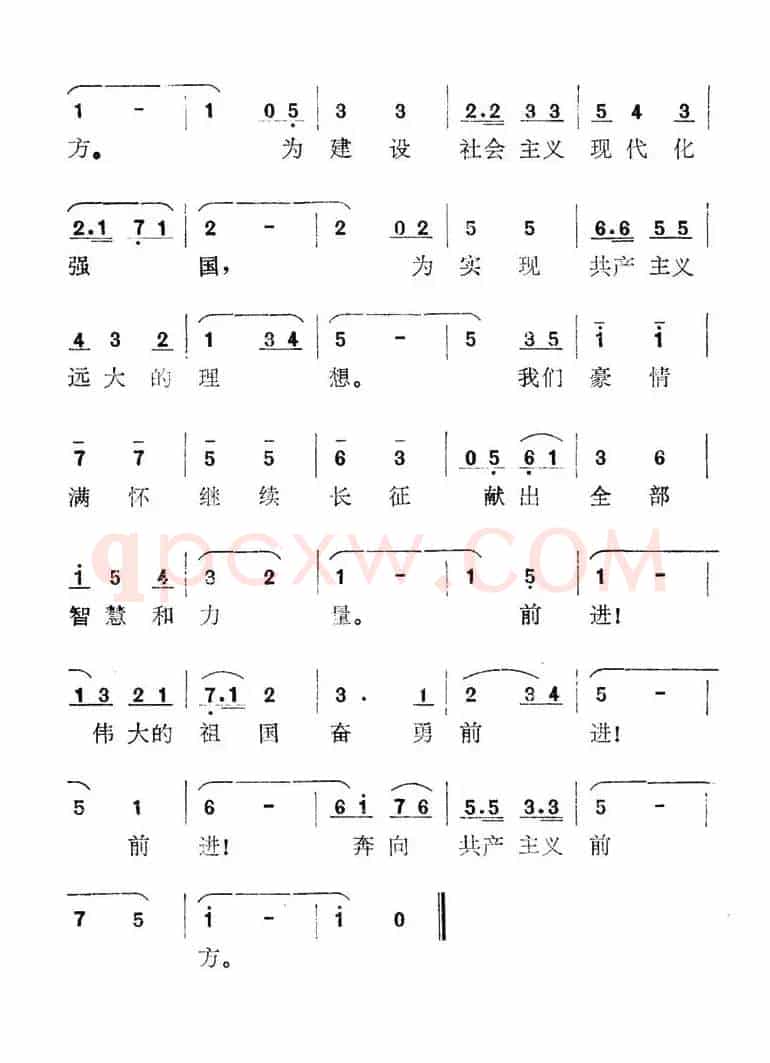 1 - | 1 0 5 | 3 3 | 2.2 3 3 | 5 4 3 |
方。 为 建 设 社会 主义 现 代 化
2.1 7 1 | 2 - | 2 0 2 | 5 5 | 6.6 5 5 |
强 国, 为 实 现 共产 主义
4 3 2 | 1 3 4 | 5 - | 5 3 5 | i i |
远 大 的 理 想。 我们 豪 情
7 7 | 5 5 | 6 3 | 0 5 6 1 | 3 6 |
满 怀 继 续 长 征 献 出 全 部
qpcxw.COM
i 5 4 | 3 2 | 1 - | 1 5 | 1 - |
智 慧 和 力 量。 前 进!
1 3 2 1 | 7.1 2 | 3 . 1 | 2 3 4 | 5 - |
伟 大的 祖 国 奋 勇 前 进!
5 1 | 6 - | 6 i 7 6 | 5.5 3.3 | 5 - |
前 进! 奔 向 共产 主义 前
7 5 | i - | i 0 ‖
方。